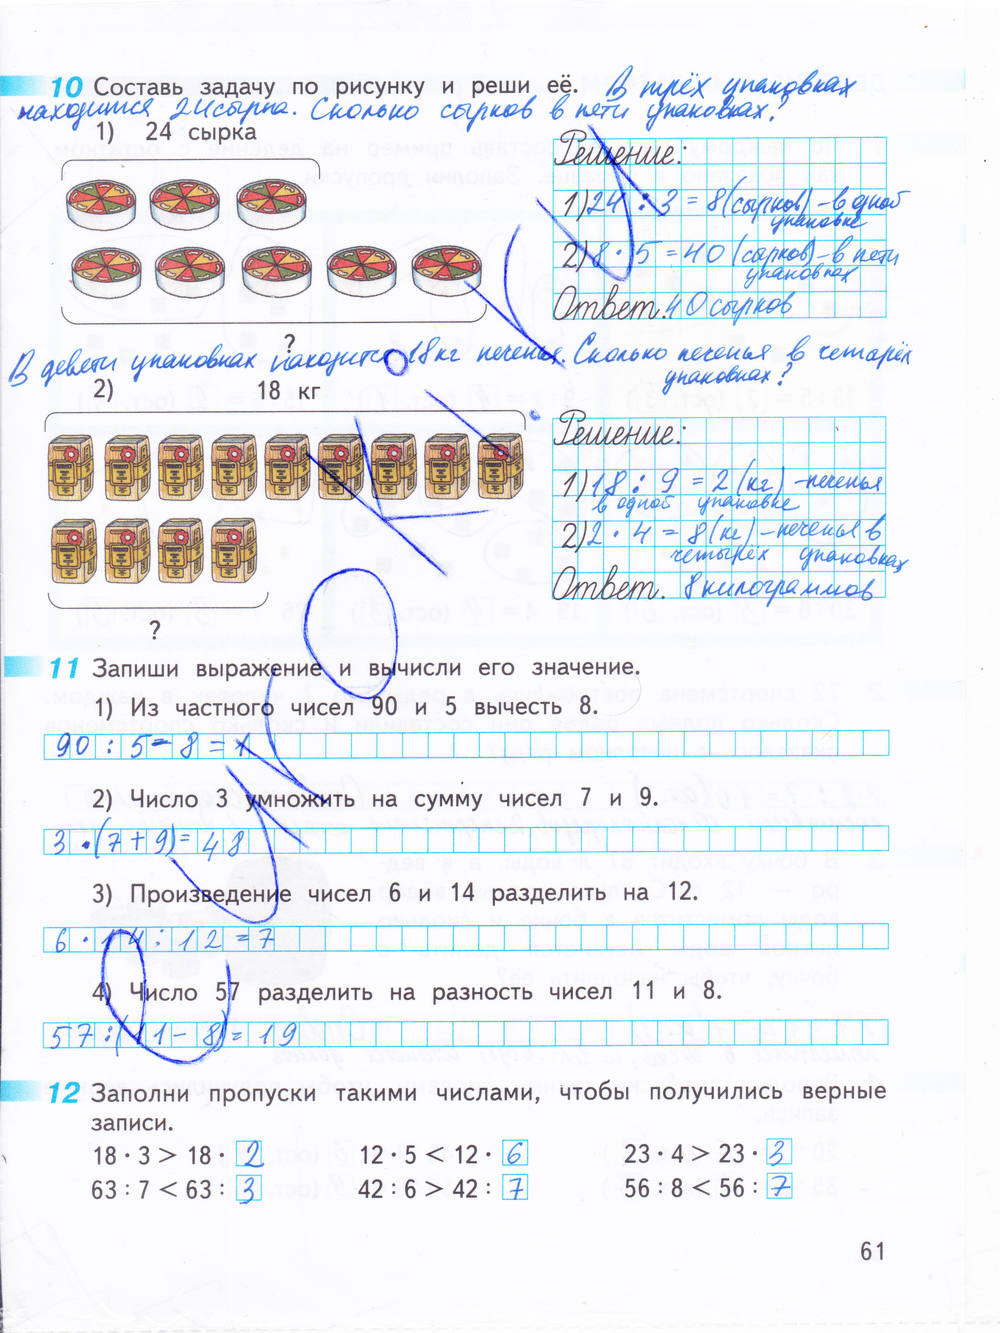 10 Составь задачу по рисунку и реши её. В трёх упаковках
находится 24 сырка. Сколько сырков в пяти упаковках?
1) 24 сырка
Решение:
1) 24 : 3 = 8 (сырков) – в одной
упаковке
2) 8 · 5 = 40 (сырков) – в пяти
упаковках
Ответ. 40 сырков
?
В девяти упаковках находится 18 кг печенья. Сколько печенья в четырёх
упаковках?
2) 18 кг
Решение:
1) 18 : 9 = 2 (кг) – печенья
в одной упаковке
2) 2 · 4 = 8 (кг) – печенья в
четырёх упаковках
Ответ. 8 килограммов
?
11 Запиши выражение и вычисли его значение.
1) Из частного чисел 90 и 5 вычесть 8.
90 : 5 – 8 = 1
2) Число 3 умножить на сумму чисел 7 и 9.
3 · (7 + 9) = 48
3) Произведение чисел 6 и 14 разделить на 12.
6 · 14 : 12 = 7
4) Число 57 разделить на разность чисел 11 и 8.
57 : (11 – 8) = 19
12 Заполни пропуски такими числами, чтобы получились верные
записи.
18 · 3 > 18 · 2 12 · 5 < 12 · 6 23 · 4 > 23 · 3
63 : 7 < 63 : 3 42 : 6 > 42 : 7 56 : 8 < 56 : 7
61